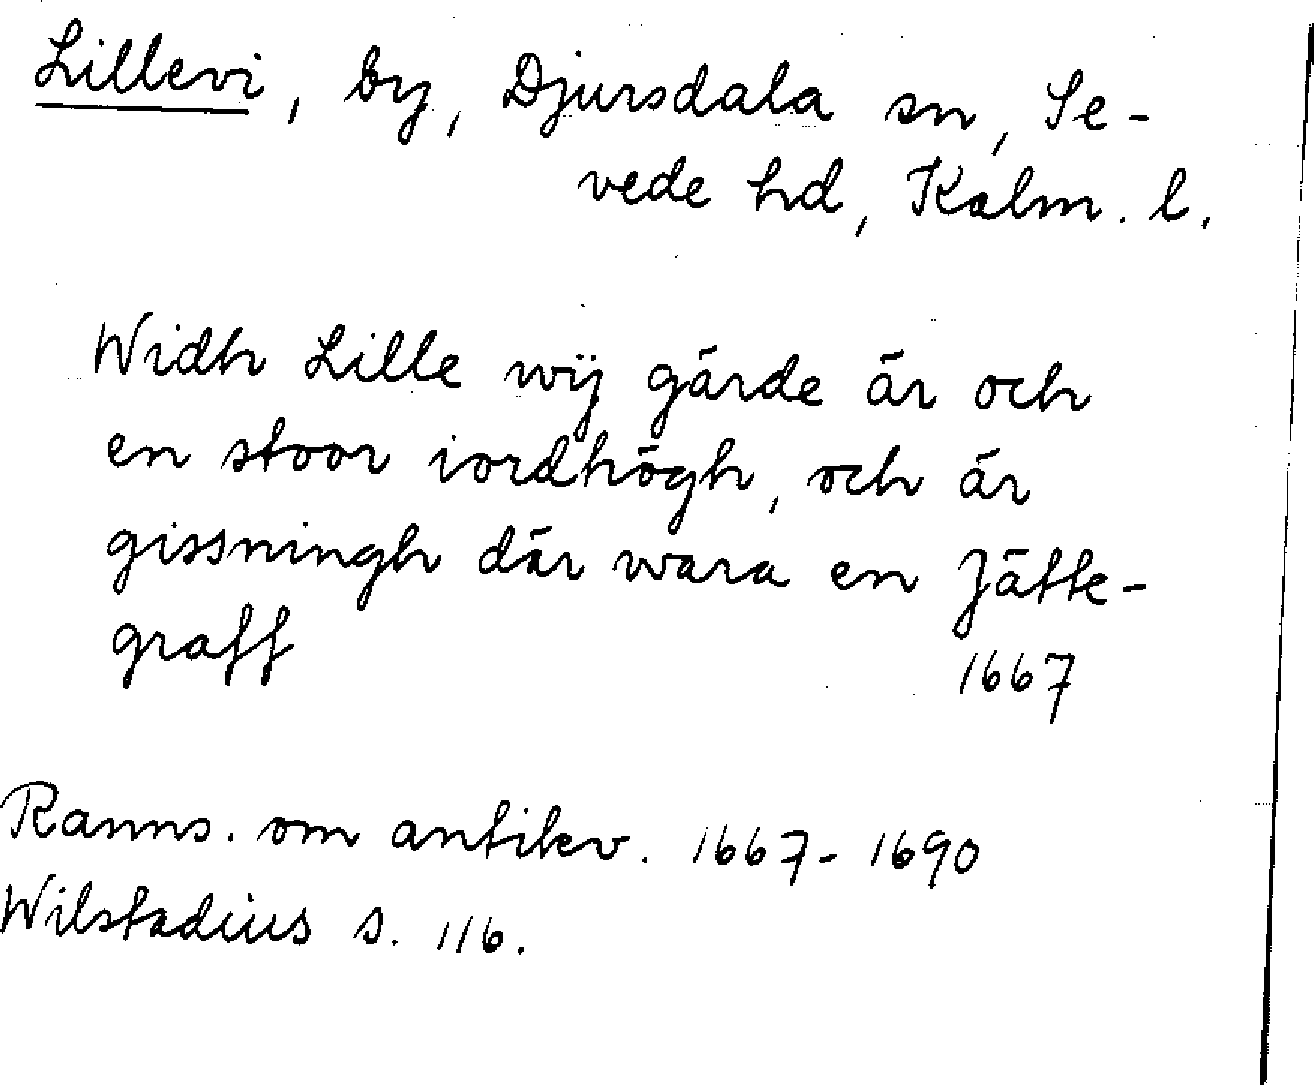 Lillevi, by, Djursdala sn, Se-
vede hd, Kalm. l.
Widh Lille wij gärde är och
en stoor iordhögh, och är
gissningh där wara en Jätte-
graff
1667
Ranns. om antikv. 1667-1690
Wilstadius s. 116.